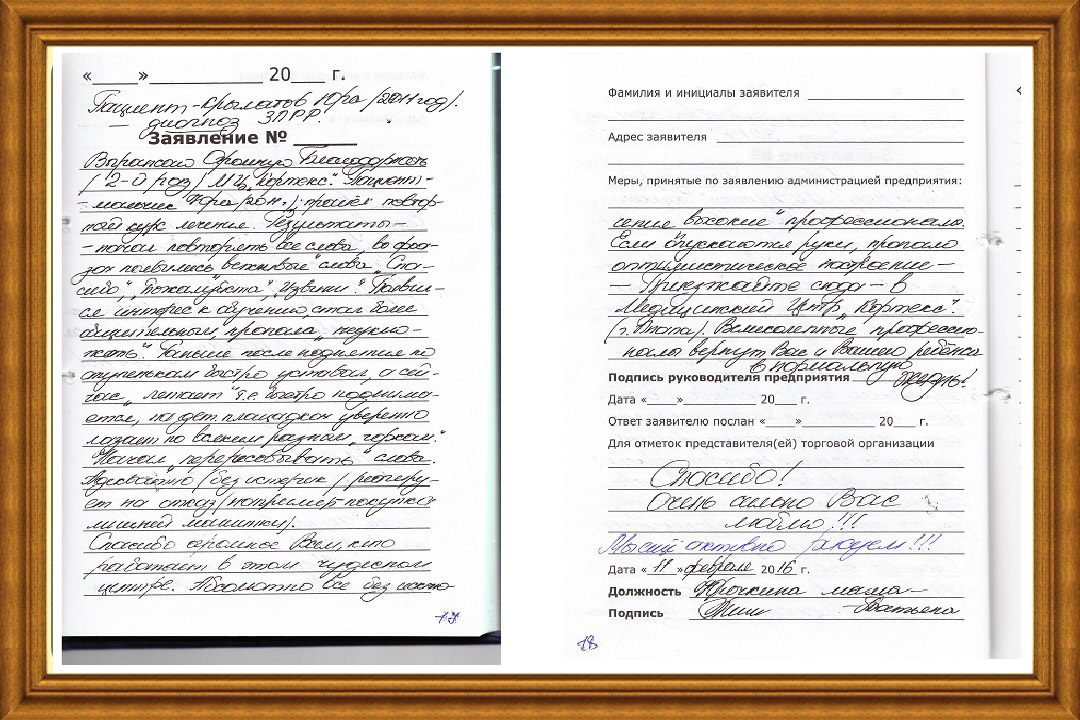 «_____»____________ 20___ г.
Пациент - Крылатов Юра /2011 год/.
— диагноз ЗПРР.
Заявление № ______
Выражаю Огромную Благодарность
/ 2-й раз / МЦ „Кортекс". Пациент -
- мальчик Юра /2011г./ прошёл повтор-
ный курс лечения. Результаты -
- начал повторять все слова, во фра-
зах появились „вежливые" слова „Спа-
сибо", „Пожалуйста", „Извини". Появил-
ся интерес к обучению, стал более
общительный, пропала „
". Раньше после поднятия по
ступенькам быстро уставал, а сей-
час „летает" т.е. быстро поднима-
ется, на дет. площадках уверенно
лазает по всяким разным „горкам".
Начал „перерисовывать" слова.
Адекватно / без истерик / реагиру-
ет на отказ / например покупка
лишней машинки/.
Спасибо огромное Всем, кто
работает в этом чудесном
центре. Абсолютно все без исклю-
17
Фамилия и инициалы заявителя
Адрес заявителя
Меры, принятые по заявлению администрацией предприятия:
чения высокие профессионалы.
Если опускаются руки, пропало
оптимистическое настроение -
- Приезжайте сюда - в
Медицинский Центр „Кортекс".
(г. Ялта). Великолепные профессио-
налы вернут Вас и Вашего ребёнка
в нормальную
жизнь!
Подпись руководителя предприятия
Дата «____»____________ 20___ г.
Ответ заявителю послан «____»__________ 20___ г.
Для отметок представителя(ей) торговой организации
Спасибо!
Очень сильно Вас
люблю !!!
активно !!!
Дата « 11 » февраля 2016 г.
Должность Юрочкина мама -
Подпись - Татьяна
18